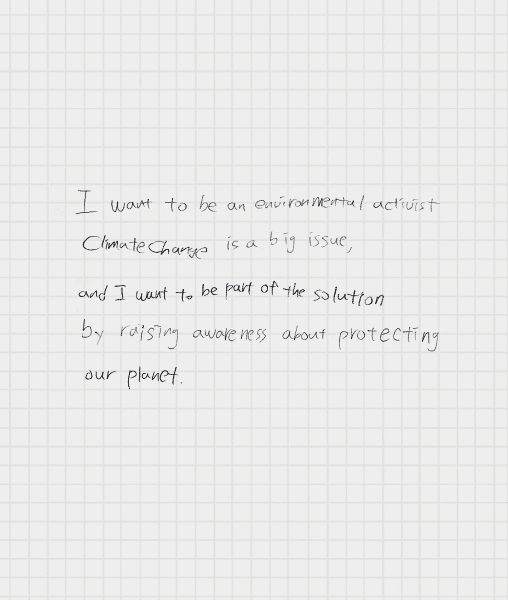 I want to be an environmental activist
Climate Change is a big issue,
and I want to be part of the solution
by raising awareness about protecting
our planet.